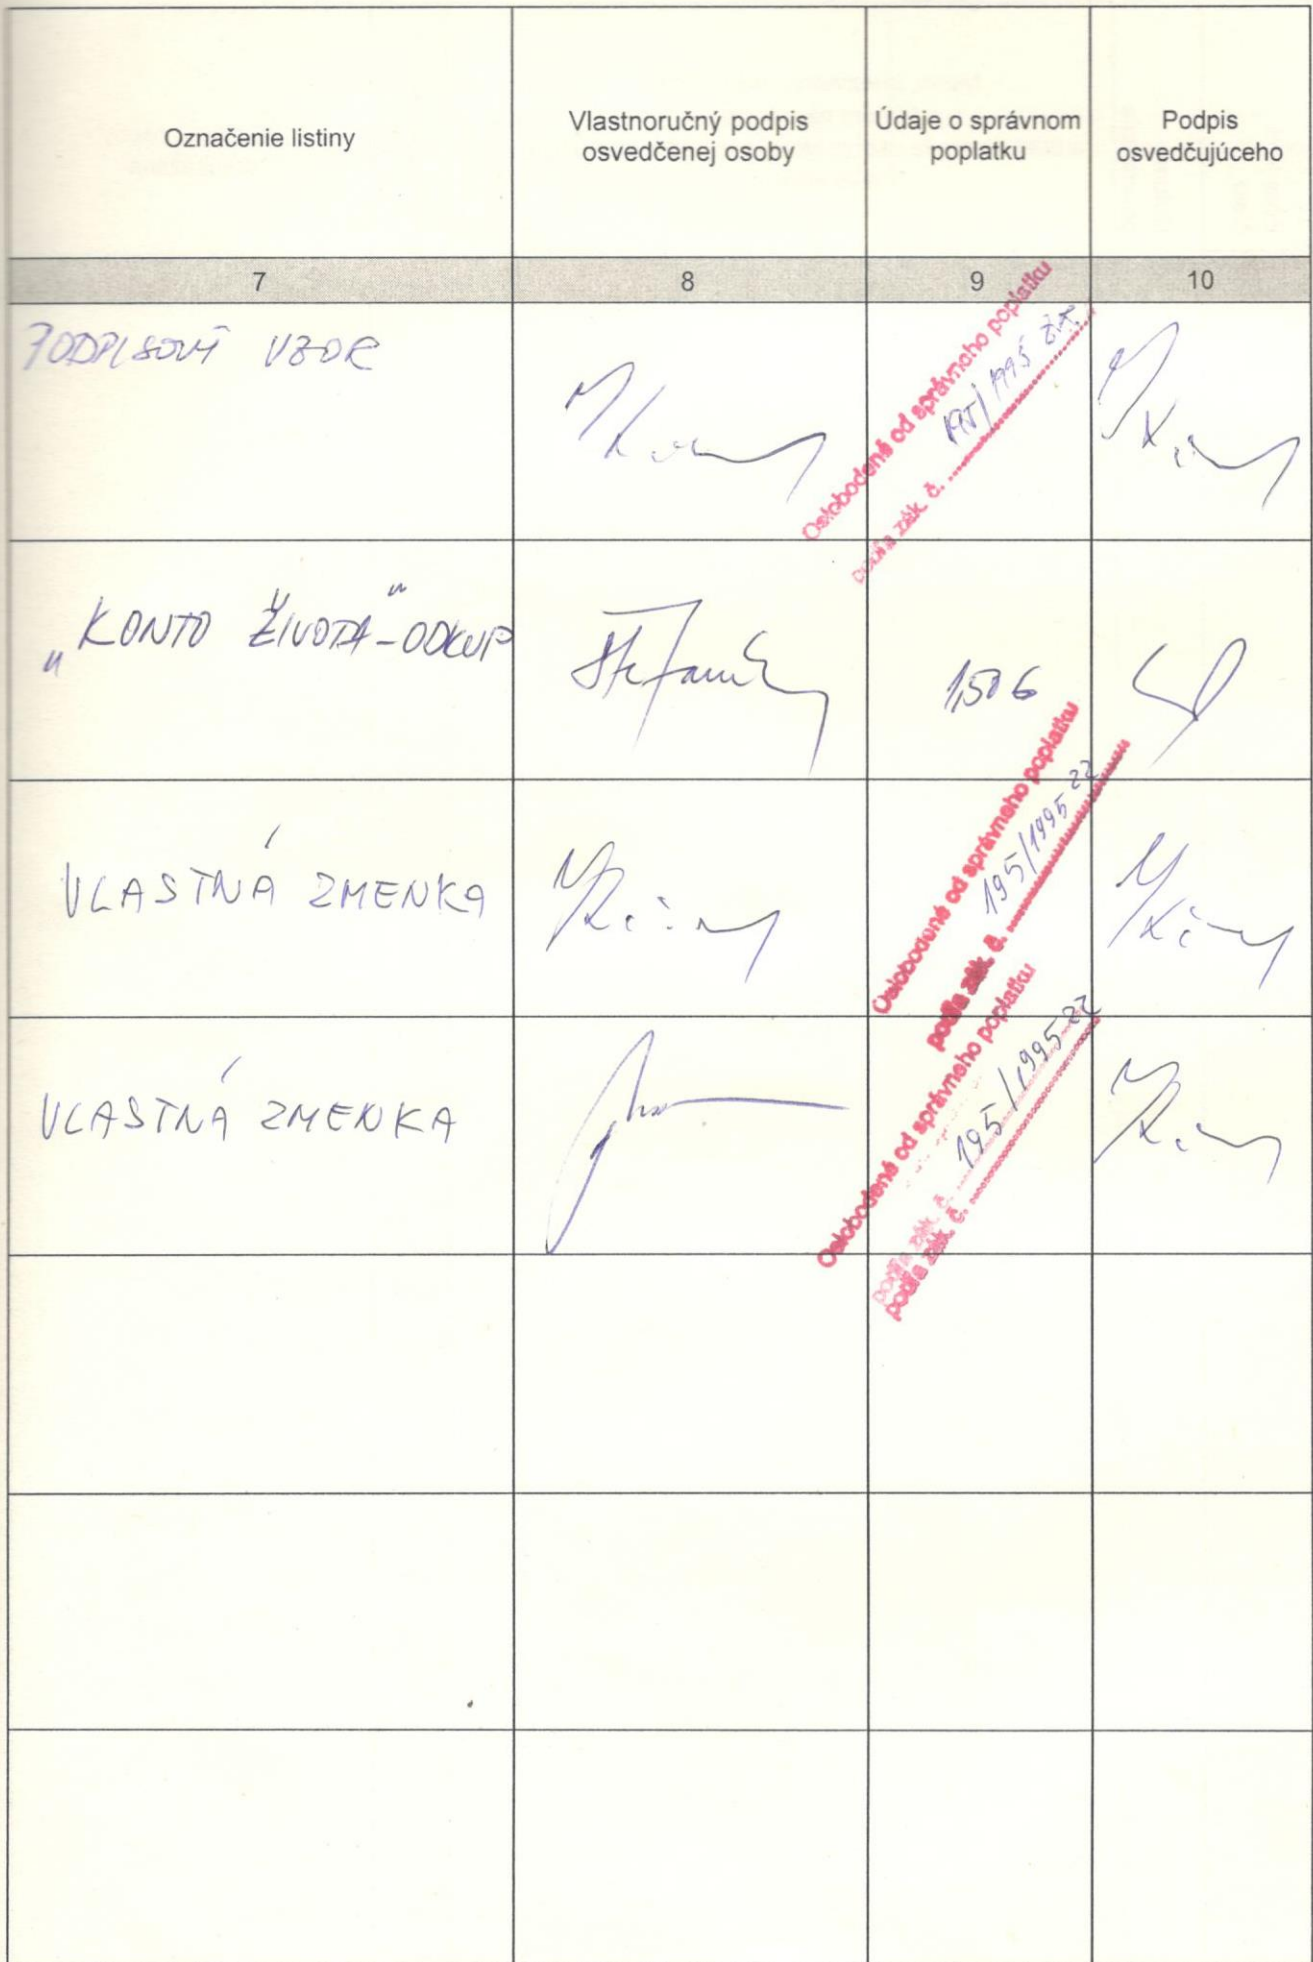 Označenie listiny
Vlastnoručný podpis
osvedčenej osoby
Údaje o správnom
poplatku
Podpis
osvedčujúceho
7
8
9
10
PODPISOVÝ VZOR
Oslobodené od správneho poplatku
podľa zák. č. 195/1995 Z.z.
„KONTO ŽIVOTA“-ODKUP
Štefanik
1,50 €
VLASTNÁ ZMENKA
Oslobodené od správneho poplatku
podľa zák. č. 195/1995 ZZ
VLASTNÁ ZMENKA
Oslobodené od správneho poplatku
podľa zák. č.
podľa zák. č. 195/1995 ZZ